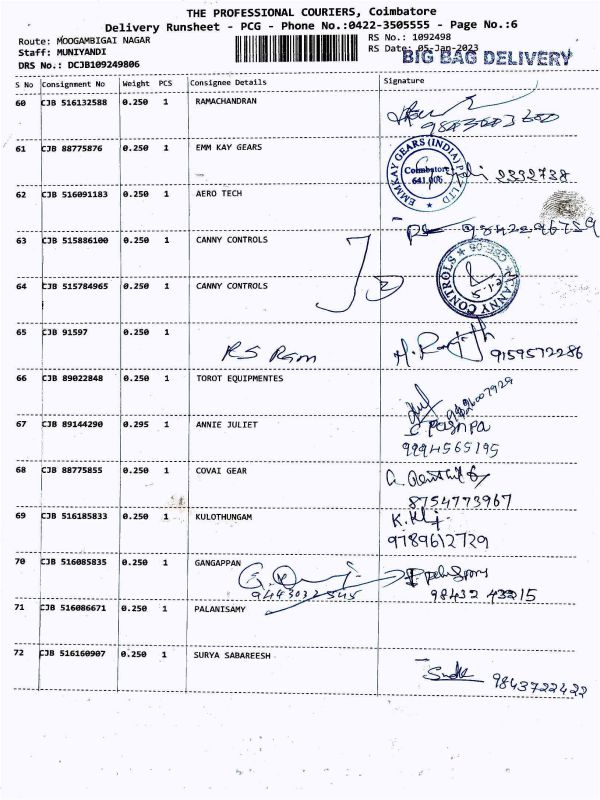 THE PROFESSIONAL COURIERS, Coimbatore
Delivery Runsheet - PCG - Phone No.:0422-3505555 - Page No.:6
Route: MOOGAMBIGAI NAGAR RS No.: 1092498
Staff: MUNIYANDI RS Date: 05-Jan-2023
DRS No.: DCJB109249806 BIG BAG DELIVERY
S No Consignment No Weight PCS Consignee Details Signature
60 CJB 516132588 0.250 1 RAMACHANDRAN
61 CJB 88775876 0.250 1 EMM KAY GEARS
EMMKAY GEARS (INDIA) PVT LTD
Coimbatore
641 006
2332738
62 CJB 516091183 0.250 1 AERO TECH
9842296759
63 CJB 515886100 0.250 1 CANNY CONTROLS
CANNY CONTROLS CBE-06
64 CJB 515784965 0.250 1 CANNY CONTROLS
65 CJB 91597 0.250 1
RS Ram 9159572286
66 CJB 89022848 0.250 1 TOROT EQUIPMENTES
67 CJB 89144290 0.295 1 ANNIE JULIET
9994565195
68 CJB 88775855 0.250 1 COVAI GEAR
8754773967
69 CJB 516185833 0.250 1 KULOTHUNGAM
9789612729
70 CJB 516085835 0.250 1 GANGAPPAN
9443032545
71 CJB 516086671 0.250 1 PALANISAMY
72 CJB 516160907 0.250 1 SURYA SABAREESH
9843722422